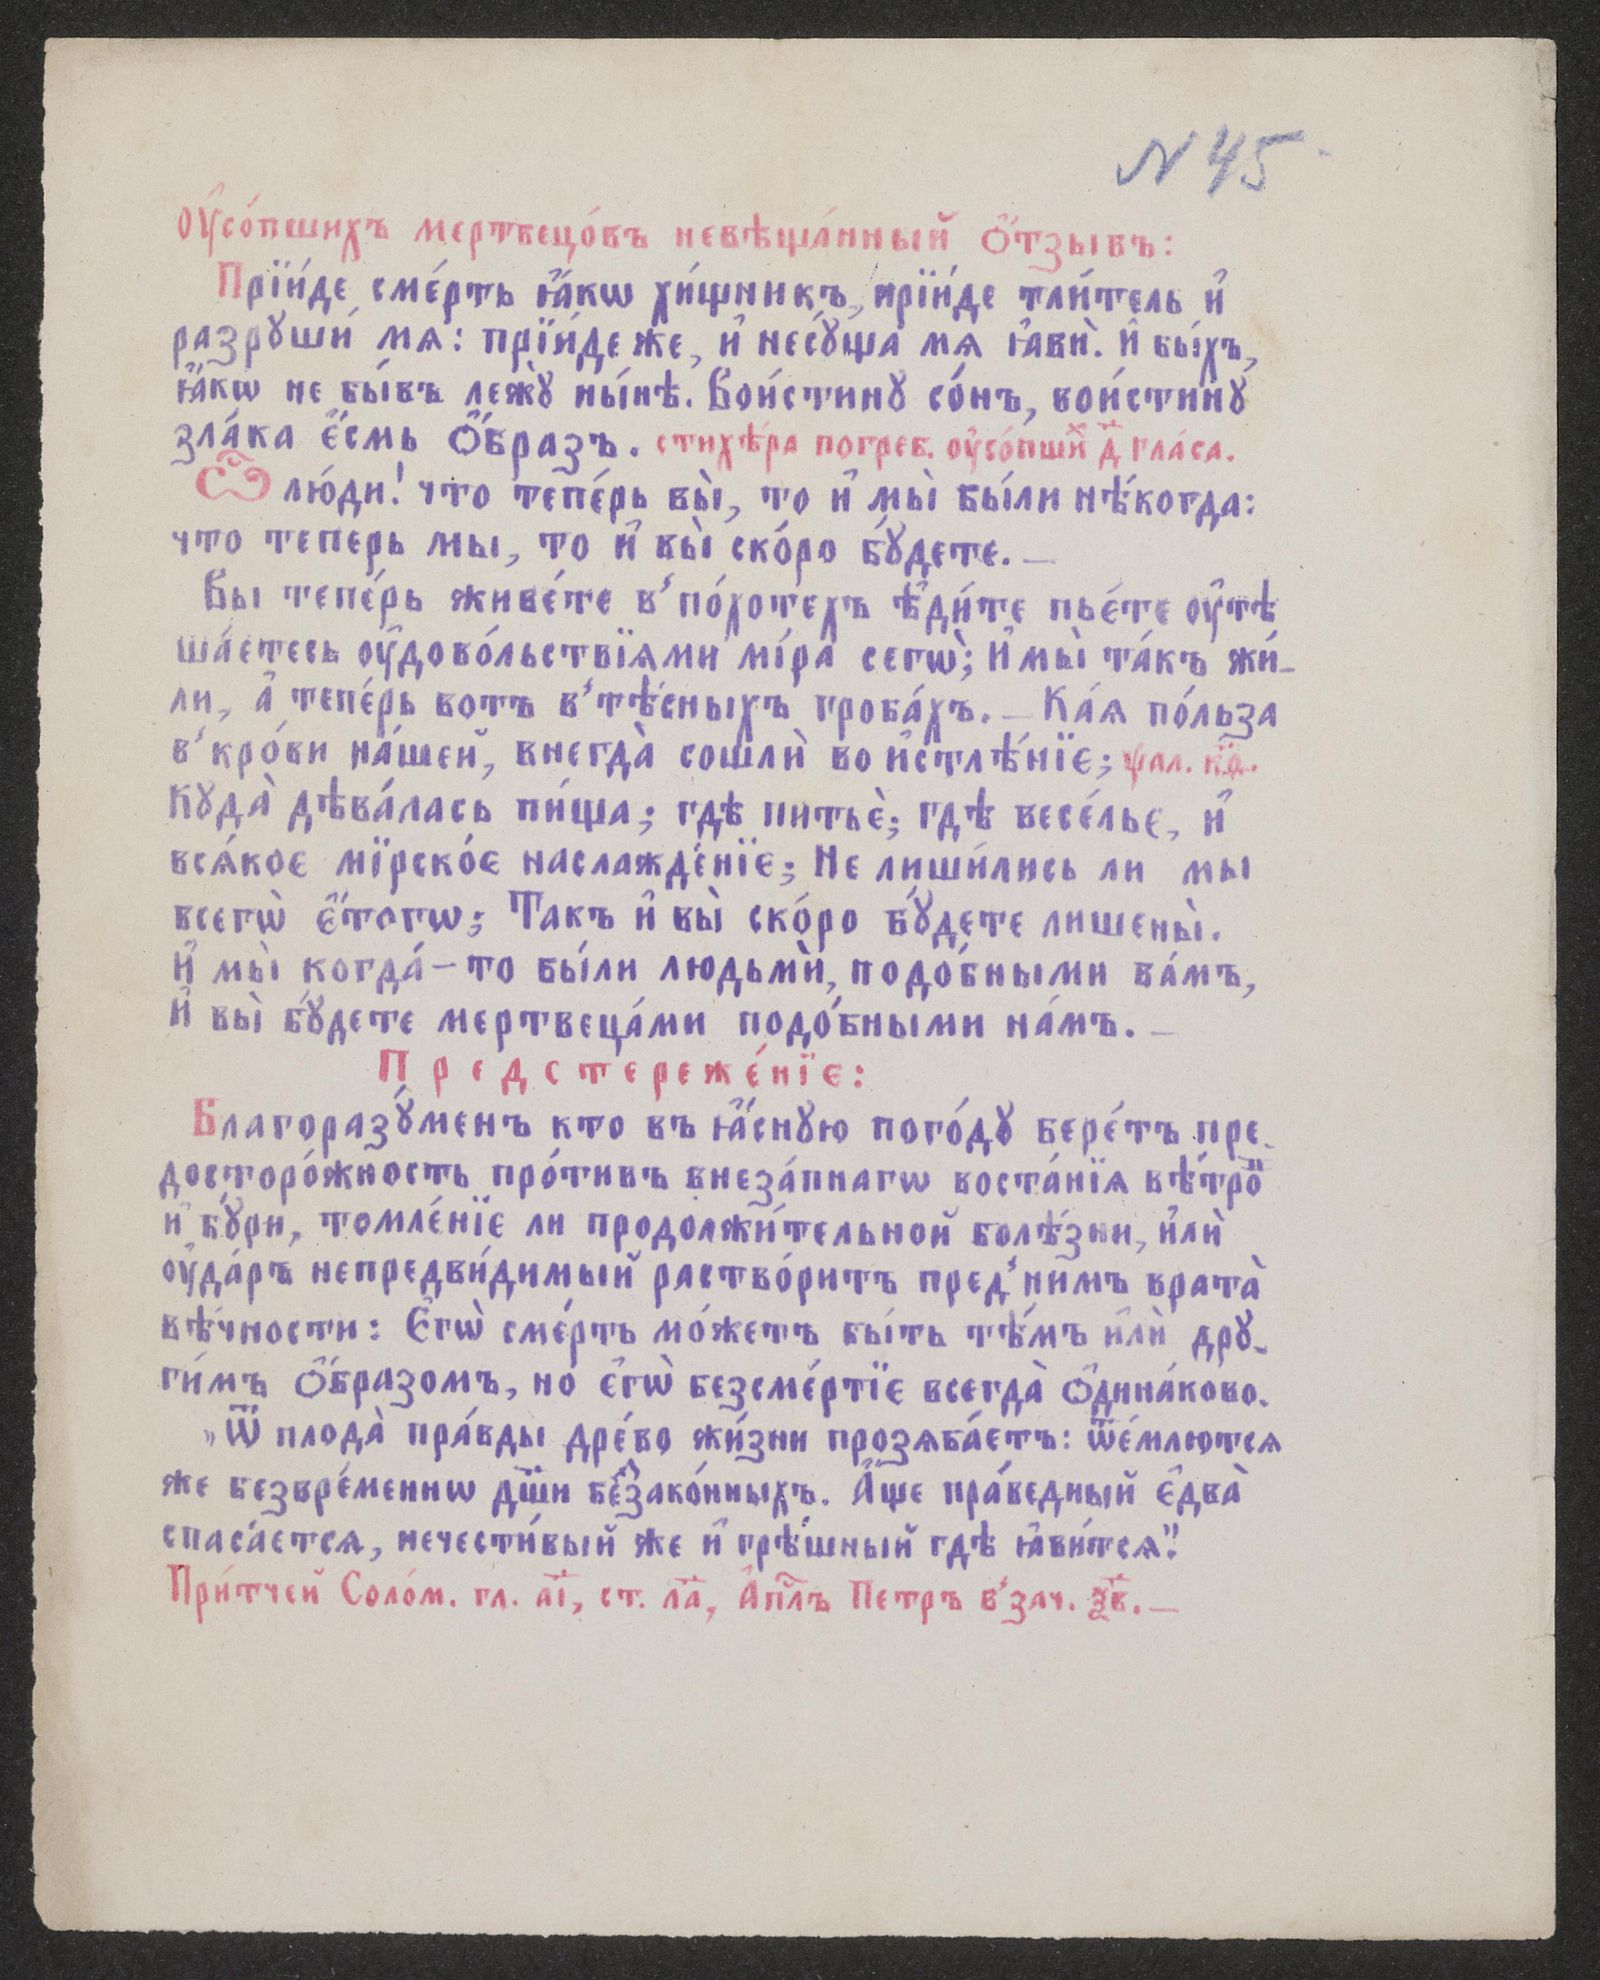 N 45
Оу҆со́пшихъ мертвецо́въ невѣща́нный ѻ҆́тзывъ:
Прїи́де сме́рть ꙗ҆́кѡ хи́щникъ, прїи́де тли́тель и҆
разрꙋши́ мѧ: прїи́де же, и҆ несꙋ́ща мѧ ꙗ҆вѝ. И҆ бы́хъ,
ꙗ҆́кѡ не бы́въ лежꙋ̀ ны́нѣ. Вои́стинꙋ со́нъ, вои́стинꙋ
зла́ка є҆́смь ѻ҆́бразъ. стихѣ́ра погреб. оу҆со́пши҃ д҃ гла́са.
Ѽ лю́ди! что тепе́рь вы̀, то и҆ мы̀ бы́ли нѣ́когда:
что теперь мы, то и҆ вы̀ ско́ро бꙋ́дете. —
Вы тепе́рь живе́те в̾ по́хотехъ ѣ҆ди́те пье́те оу҆тѣ
ша́етесь оу҆дово́льствїѧми мі́ра сегѡ̀; и҆ мы̀ та́къ жи́-
ли, а҆ тепе́рь вотъ в̾ тѣ́сныхъ гроба́хъ. — Ка́ѧ по́льза
в̾ кро́ви на́шей, внегда̀ сошлѝ во и҆стлѣ́нїе; ѱал. к҃ѳ.
Кꙋда̀ дѣва́лась пи́ща; гдѣ питьѐ; гдѣ весе́лье, и҆
всѧ́кое мїрско́е наслажде́нїе; Не лиши́лись ли мы
всегѡ̀ є҆́тогѡ; Такъ и҆ вы̀ ско́ро бꙋ́дете лишены̀.
И҆ мы̀ когда́-то бы́ли людьмѝ, подо́бными ва́мъ,
И҆ вы̀ бꙋ́дете мертвеца́ми подо́бными на́мъ. —
Предстереже́нїе:
Благоразꙋ́менъ кто въ ꙗ҆́снꙋю пого́дꙋ бере́тъ пре-
досторо́жность про́тивъ внеза́пнагѡ воста́нїѧ вѣ́тро҃
и҆ бꙋ́ри, томле́нїе ли продолжи́тельной болѣ́зни, и҆лѝ
оу҆да́ръ непредви́димый раство́ритъ пред̾ ни́мъ врата̀
вѣ́чности: Є҆гѡ̀ сме́рть мо́жетъ бы́ть тѣ́мъ и҆лѝ дрꙋ-
ги́мъ ѻ҆́бразомъ, но є҆гѡ̀ безсме́ртїе всегда̀ ѻ҆дина́ково.
„Ѿ плода̀ пра́вды дре́во жи́зни прозѧба́етъ: ѿе́млютсѧ
же безвре́меннѡ дш҃и беззако́нныхъ. А҆́ще пра́ведный є҆два̀
спаса́етсѧ, нечести́вый же и҆ грѣ́шный гдѣ ꙗ҆ви́тсѧ".
При́тчей Соло́м. гл. а҃і, ст. л҃а, А҆пⷭ҇лъ Петръ в̾ зач. ѯ҃в. —